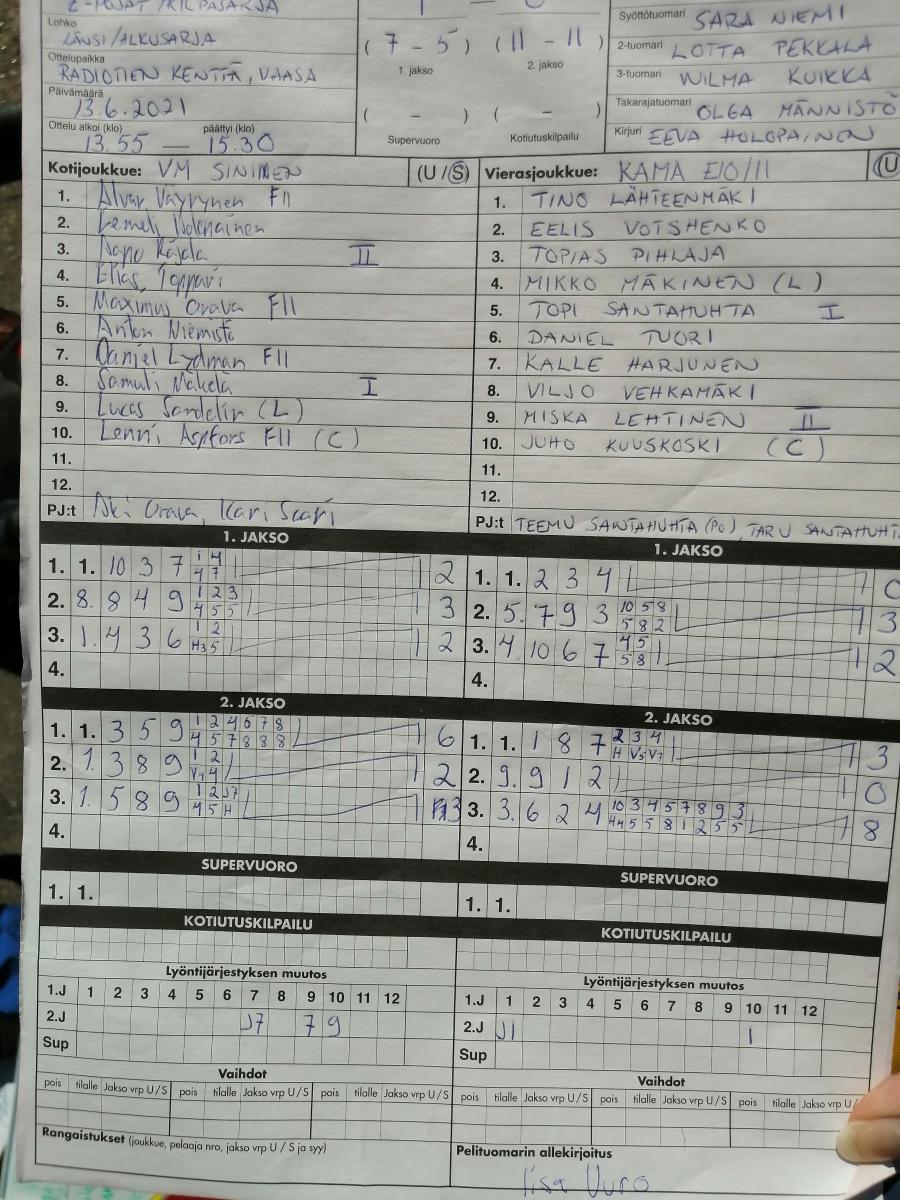 E-POJAT /KILPASARJA
Lohko
LÄNSI/ALKUSARJA
Ottelupaikka
RADIOTIEN KENTTÄ, VAASA
Päivämäärä
13.6.2021
Ottelu alkoi (klo) päättyi (klo)
13.55 — 15.30
(7 - 5) (11 - 11)
1. jakso 2. jakso
( - ) ( - )
Supervuoro Kotiutuskilpailu
Syöttötuomari SARA NIEMI
2-tuomari LOTTA PEKKALA
3-tuomari WILMA KUIKKA
Takarajatuomari OLGA MÄNNISTÖ
Kirjuri EEVA HOLOPAINEN
Kotijoukkue: VM SININEN (U/S)
1. Alvar Väyrynen F11
2. Lemeli
3. Rajala II
4. Elias Toppari
5. Maximus Orava F11
6. Anton Niemistö
7. Daniel Lydman F11
8. Samuli Mäkelä I
9. Lucas Sandelin (L)
10. Lenni Aspfors F11 (C)
11.
12.
PJ:t Aki Orava, Kari Saari
Vierasjoukkue: KAMA E10/11 (U
1. TINO LÄHTEENMÄKI
2. EELIS VOTSHENKO
3. TOPIAS PIHLAJA
4. MIKKO MÄKINEN (L)
5. TOPI SANTAHUHTA I
6. DANIEL TUORI
7. KALLE HARJUNEN
8. VILJO VEHKAMÄKI
9. MISKA LEHTINEN II
10. JUHO KUUSKOSKI (C)
11.
12.
PJ:t TEEMU SANTAHUHTA (PO), TARU SANTAHUHTA
1. JAKSO
1. 1. 10 3 7 1 4 2
4 7
2. 8. 8 4 9 1 2 3 3
4 5 5
3. 1. 4 3 6 1 2 2
H3 5
4.
1. JAKSO
1. 1. 2 3 4 0
2. 5. 7 9 3 10 5 8 3
5 8 2
3. 4. 10 6 7 4 5 2
5 8
4.
2. JAKSO
1. 1. 3 5 9 1 2 4 6 7 8 6
4 5 7 8 8 8
2. 1. 3 8 9 1 2 2
V4 4
3. 1. 5 8 9 1 2 J7 3
4 5 H
4.
2. JAKSO
1. 1. 1 8 7 2 3 4 3
H V5 V7
2. 9. 9 1 2 0
3. 3. 6 2 4 10 3 4 5 7 8 9 3 8
H4 5 5 8 1 2 5 5
4.
SUPERVUORO
1. 1.
SUPERVUORO
1. 1.
KOTIUTUSKILPAILU
KOTIUTUSKILPAILU
Lyöntijärjestyksen muutos
1.J 1 2 3 4 5 6 7 8 9 10 11 12
2.J J7 7 9
Sup
Lyöntijärjestyksen muutos
1.J 1 2 3 4 5 6 7 8 9 10 11 12
2.J J1 1
Sup
Vaihdot
pois tilalle Jakso vrp U/S pois tilalle Jakso vrp U/S pois tilalle Jakso vrp U/S
Vaihdot
pois tilalle Jakso vrp U/S pois tilalle Jakso vrp U/S pois tilalle Jakso vrp U/
Rangaistukset (joukkue, pelaaja nro, jakso vrp U / S ja syy)
Pelituomarin allekirjoitus
Iisa Uuro